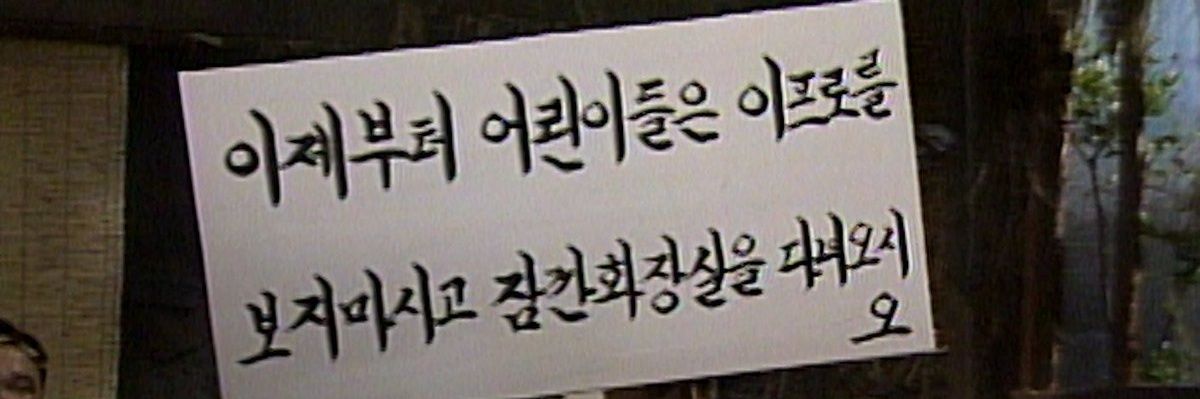 이제부터 어린이들은 이프로를
보지마시고 잠깐화장실을 다녀오시
오